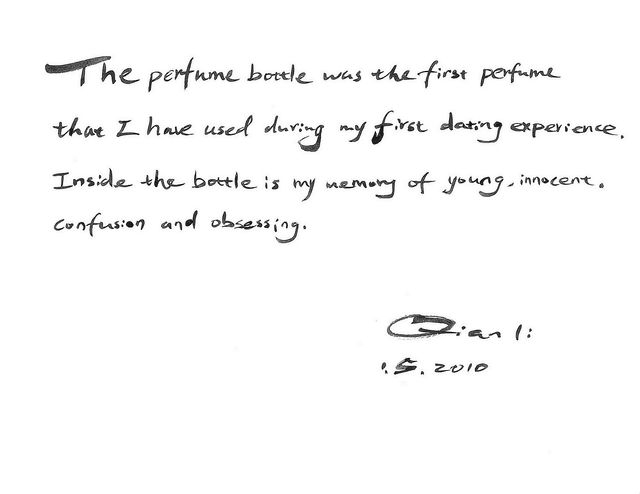 The perfume bottle was the first perfume
that I have used during my first dating experience.
Inside the bottle is my memory of young, innocent.
confusion and obsessing.
Qian li
1.5.2010